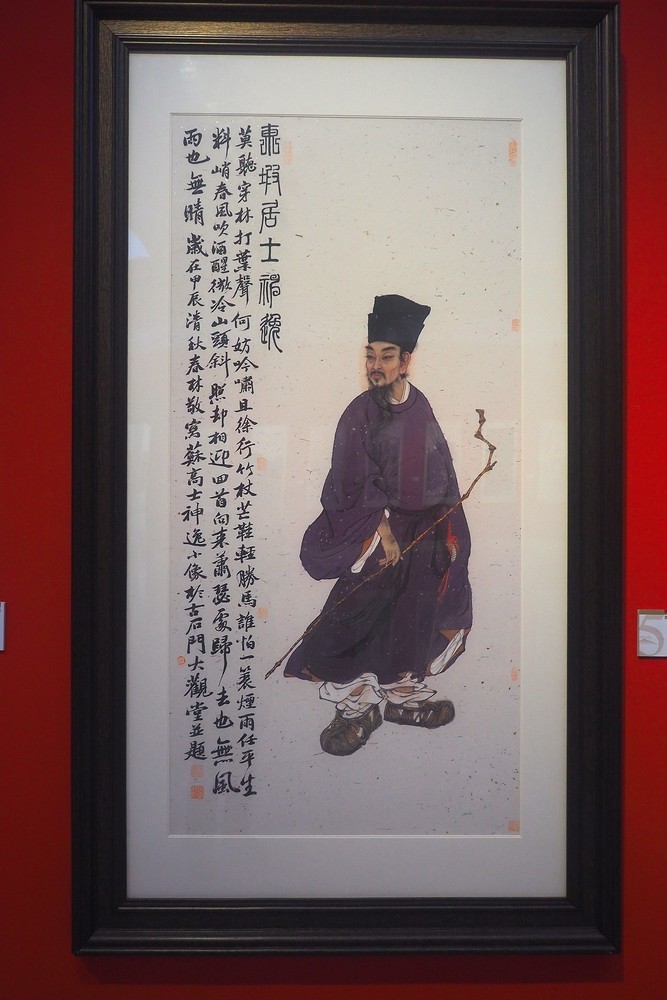 東坡居士神逸
莫聽穿林打葉聲何妨吟嘯且徐行竹杖芒鞋輕勝馬誰怕一蓑煙雨任平生
料峭春風吹酒醒微冷山頭斜照却相迎回首向来蕭瑟處歸去也無風
雨也無晴 歲在甲辰清秋春林敬寫蘇高士神逸小像於古石門大觀堂並題
5